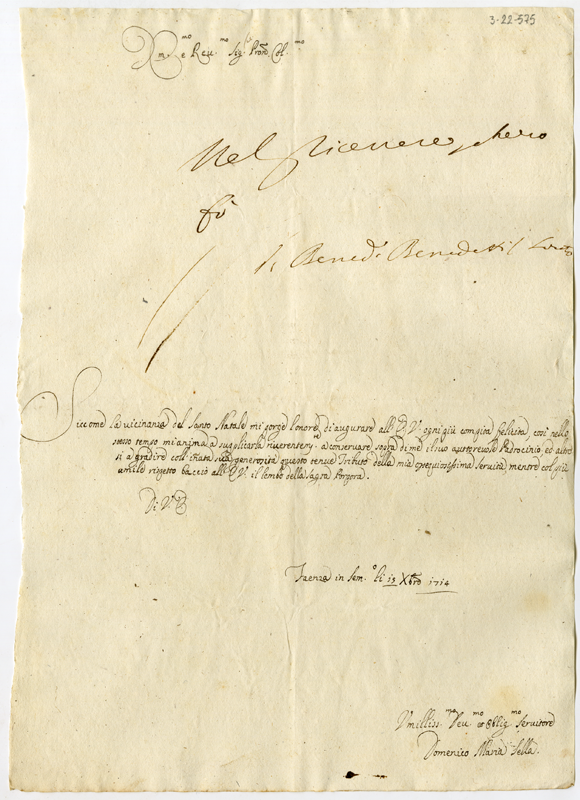 3-22-575
Em.mo e Reu.mo Sig.r Pron Col.mo
Nel
fù
Bened. Benedetti
Siccome la uicinanza del Santo Natale mi porge l'onore di augurare all' E.V. ogni più compita felicità, così nello
stesso tempo mi anima a supplicarla riuerentem.te a conseruare sopra di me il suo autoreuole Padrocinio, ed altre
si a gradire coll' inata sua generosità questo tenue Tributo della mia ossequiosissima seruitù, mentre col più
umile rispetto baccio all' E.V. il lembo della Sagra Porpora.
Di V. E.
Faenza in Sem.o li 19 Xbre 1714
Vmilliss.mo Deu.mo et Oblig.mo Seruitore
Domenico Maria Sella.